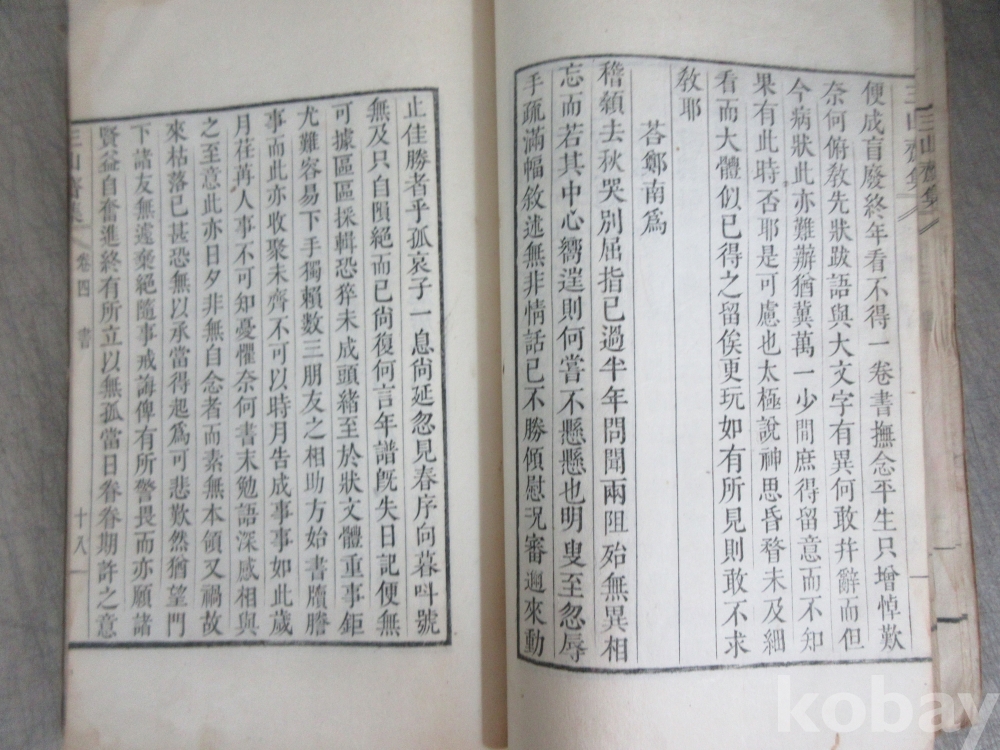 便成盲廢終年看不得一卷書撫念平生只增悼歎
奈何俯敎先狀跋語與大文字有異何敢幷辭而但
今病狀此亦難辦猶冀萬一少間庶得留意而不知
果有此時否耶是可慮也太極說神思昏瞀未及細
看而大體似已得之留俟更玩如有所見則敢不求
敎耶
荅鄭南爲
稽顙去秋哭別屈指已過半年問聞兩阻殆無異相
忘而若其中心嚮𨓏則何嘗不懸懸也明叟至忽辱
手疏滿幅敘述無非情話已不勝傾慰况審邇來動
止佳勝者乎孤哀子一息尙延忽見春序向暮叫號
無及只自隕絕而已尙復何言年譜旣失日記便無
可據區區採輯恐猝未成頭緖至於狀文體重事鉅
尤難容易下手獨賴數三朋友之相助方始書牘謄
事而此亦收聚未齊不可以時月告成事事如此歲
月荏苒人事不可知憂懼奈何書末勉語深感相與
之至意此亦日夕非無自念者而素無本領又禍故
來枯落已甚恐無以承當得起爲可悲歎然猶望門
下諸友無遽棄絕隨事戒誨俾有所警畏而亦願諸
賢益自奮進終有所立以無孤當日眷眷期許之意
三山齋集
卷四
書
十八
kobay